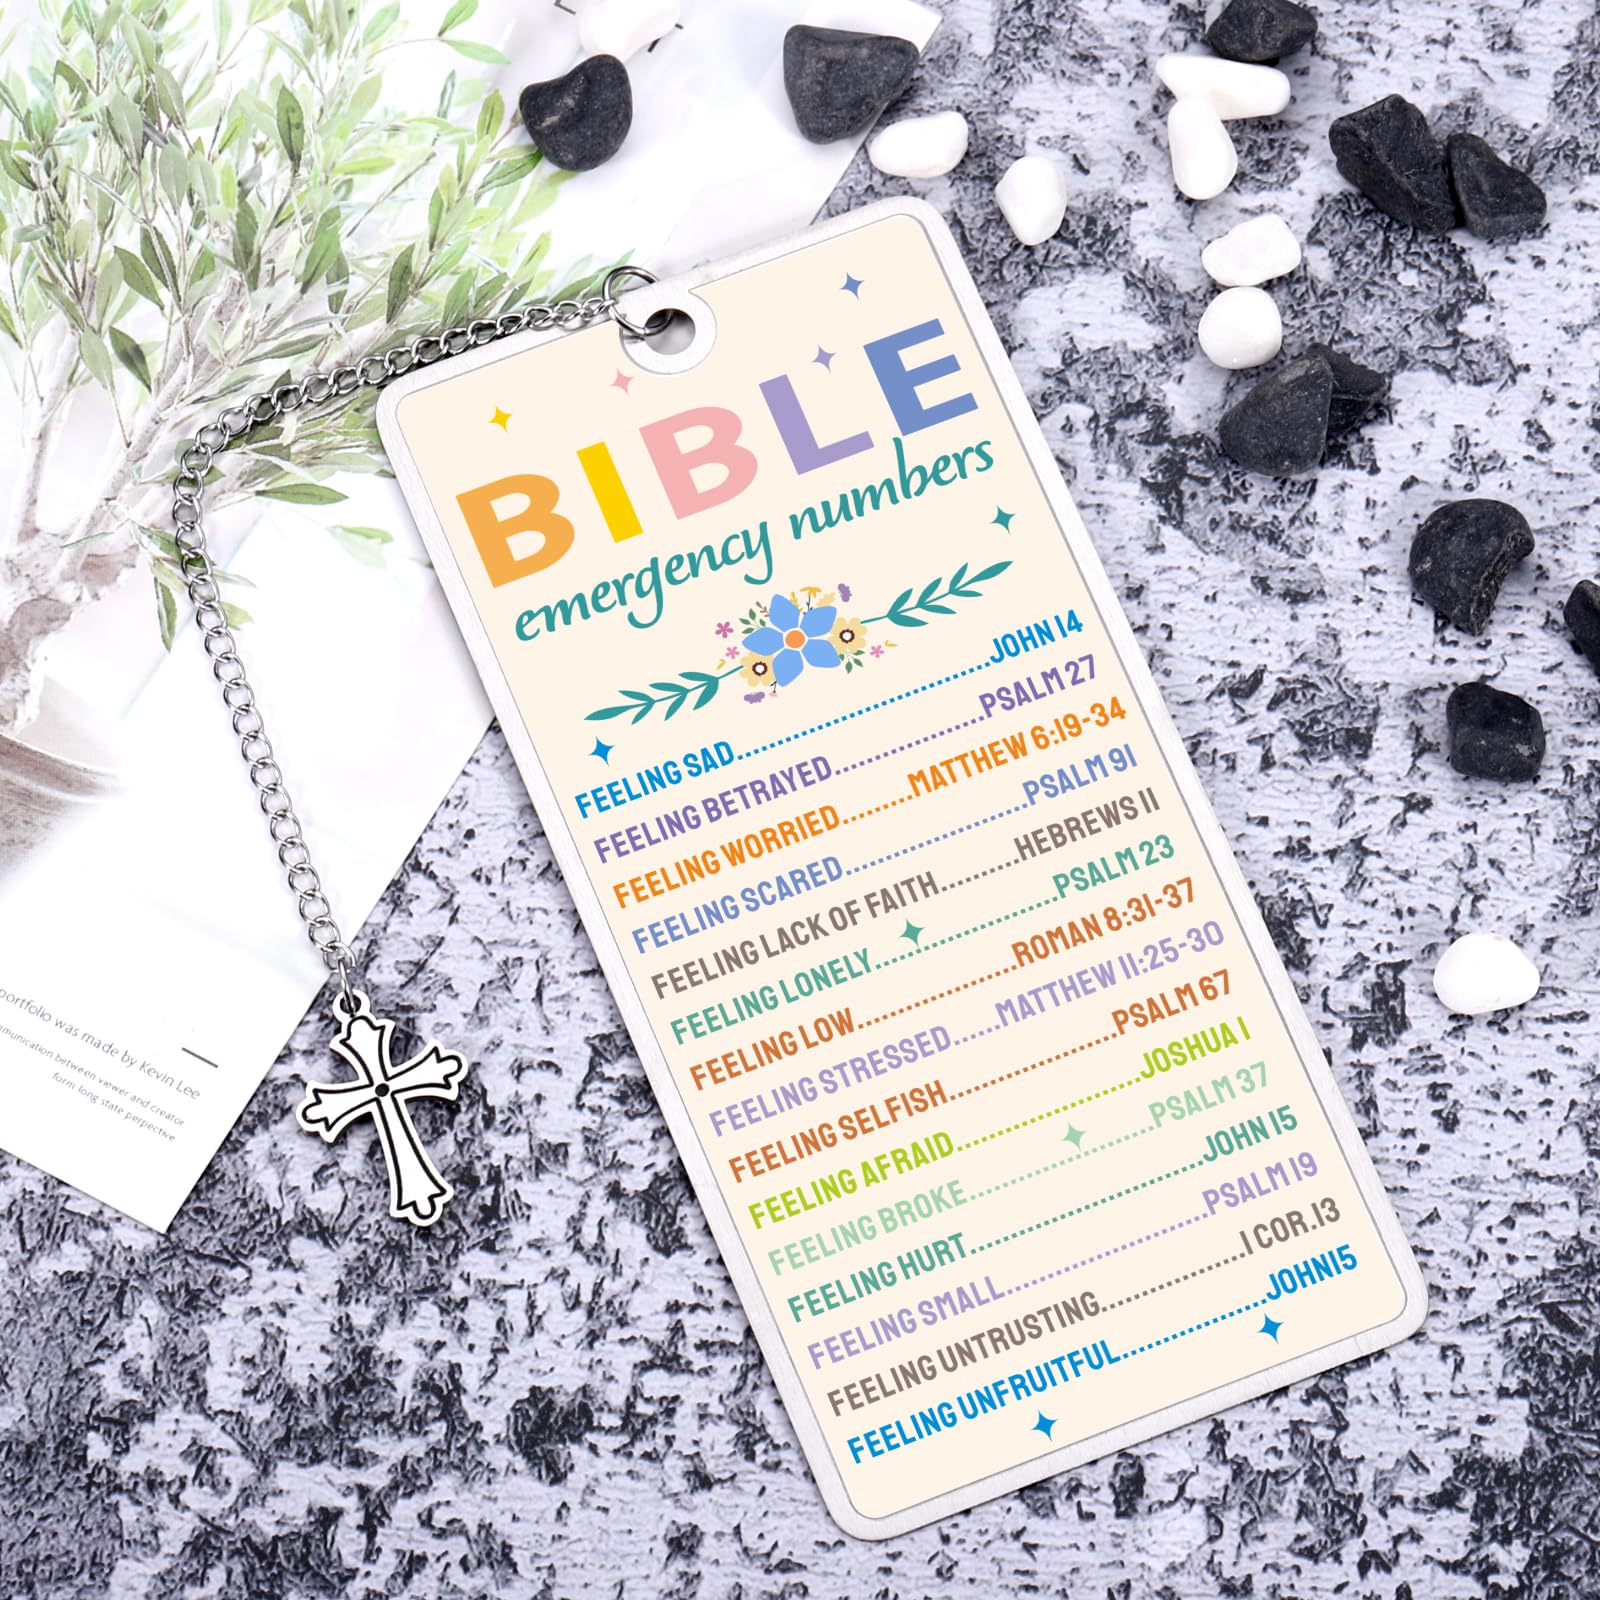 BIBLE
emergency numbers
FEELING SAD....................JOHN 14
FEELING BETRAYED............PSALM 27
FEELING WORRIED........MATTHEW 6:19-34
FEELING SCARED..............PSALM 91
FEELING LACK OF FAITH.........HEBREWS 11
FEELING LONELY..............PSALM 23
FEELING LOW.............ROMAN 8:31-37
FEELING STRESSED.....MATTHEW 11:25-30
FEELING SELFISH.............PSALM 67
FEELING AFRAID..............JOSHUA 1
FEELING BROKE..............PSALM 37
FEELING HURT..................JOHN 15
FEELING SMALL...............PSALM 19
FEELING UNTRUSTING...........1 COR.13
FEELING UNFRUITFUL...........JOHN15
portfolio was made by Kevin Lee
communication between viewer and creator
form long state perpective